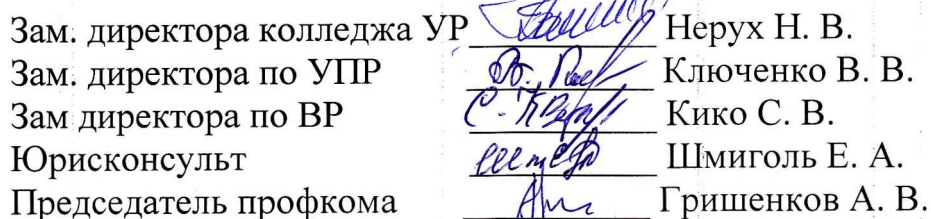 Зам. директора колледжа УР Нерух Н. В.
Зам. директора по УПР Ключенко В. В.
Зам директора по ВР Кико С. В.
Юрисконсульт Шмиголь Е. А.
Председатель профкома Гришенков А. В.